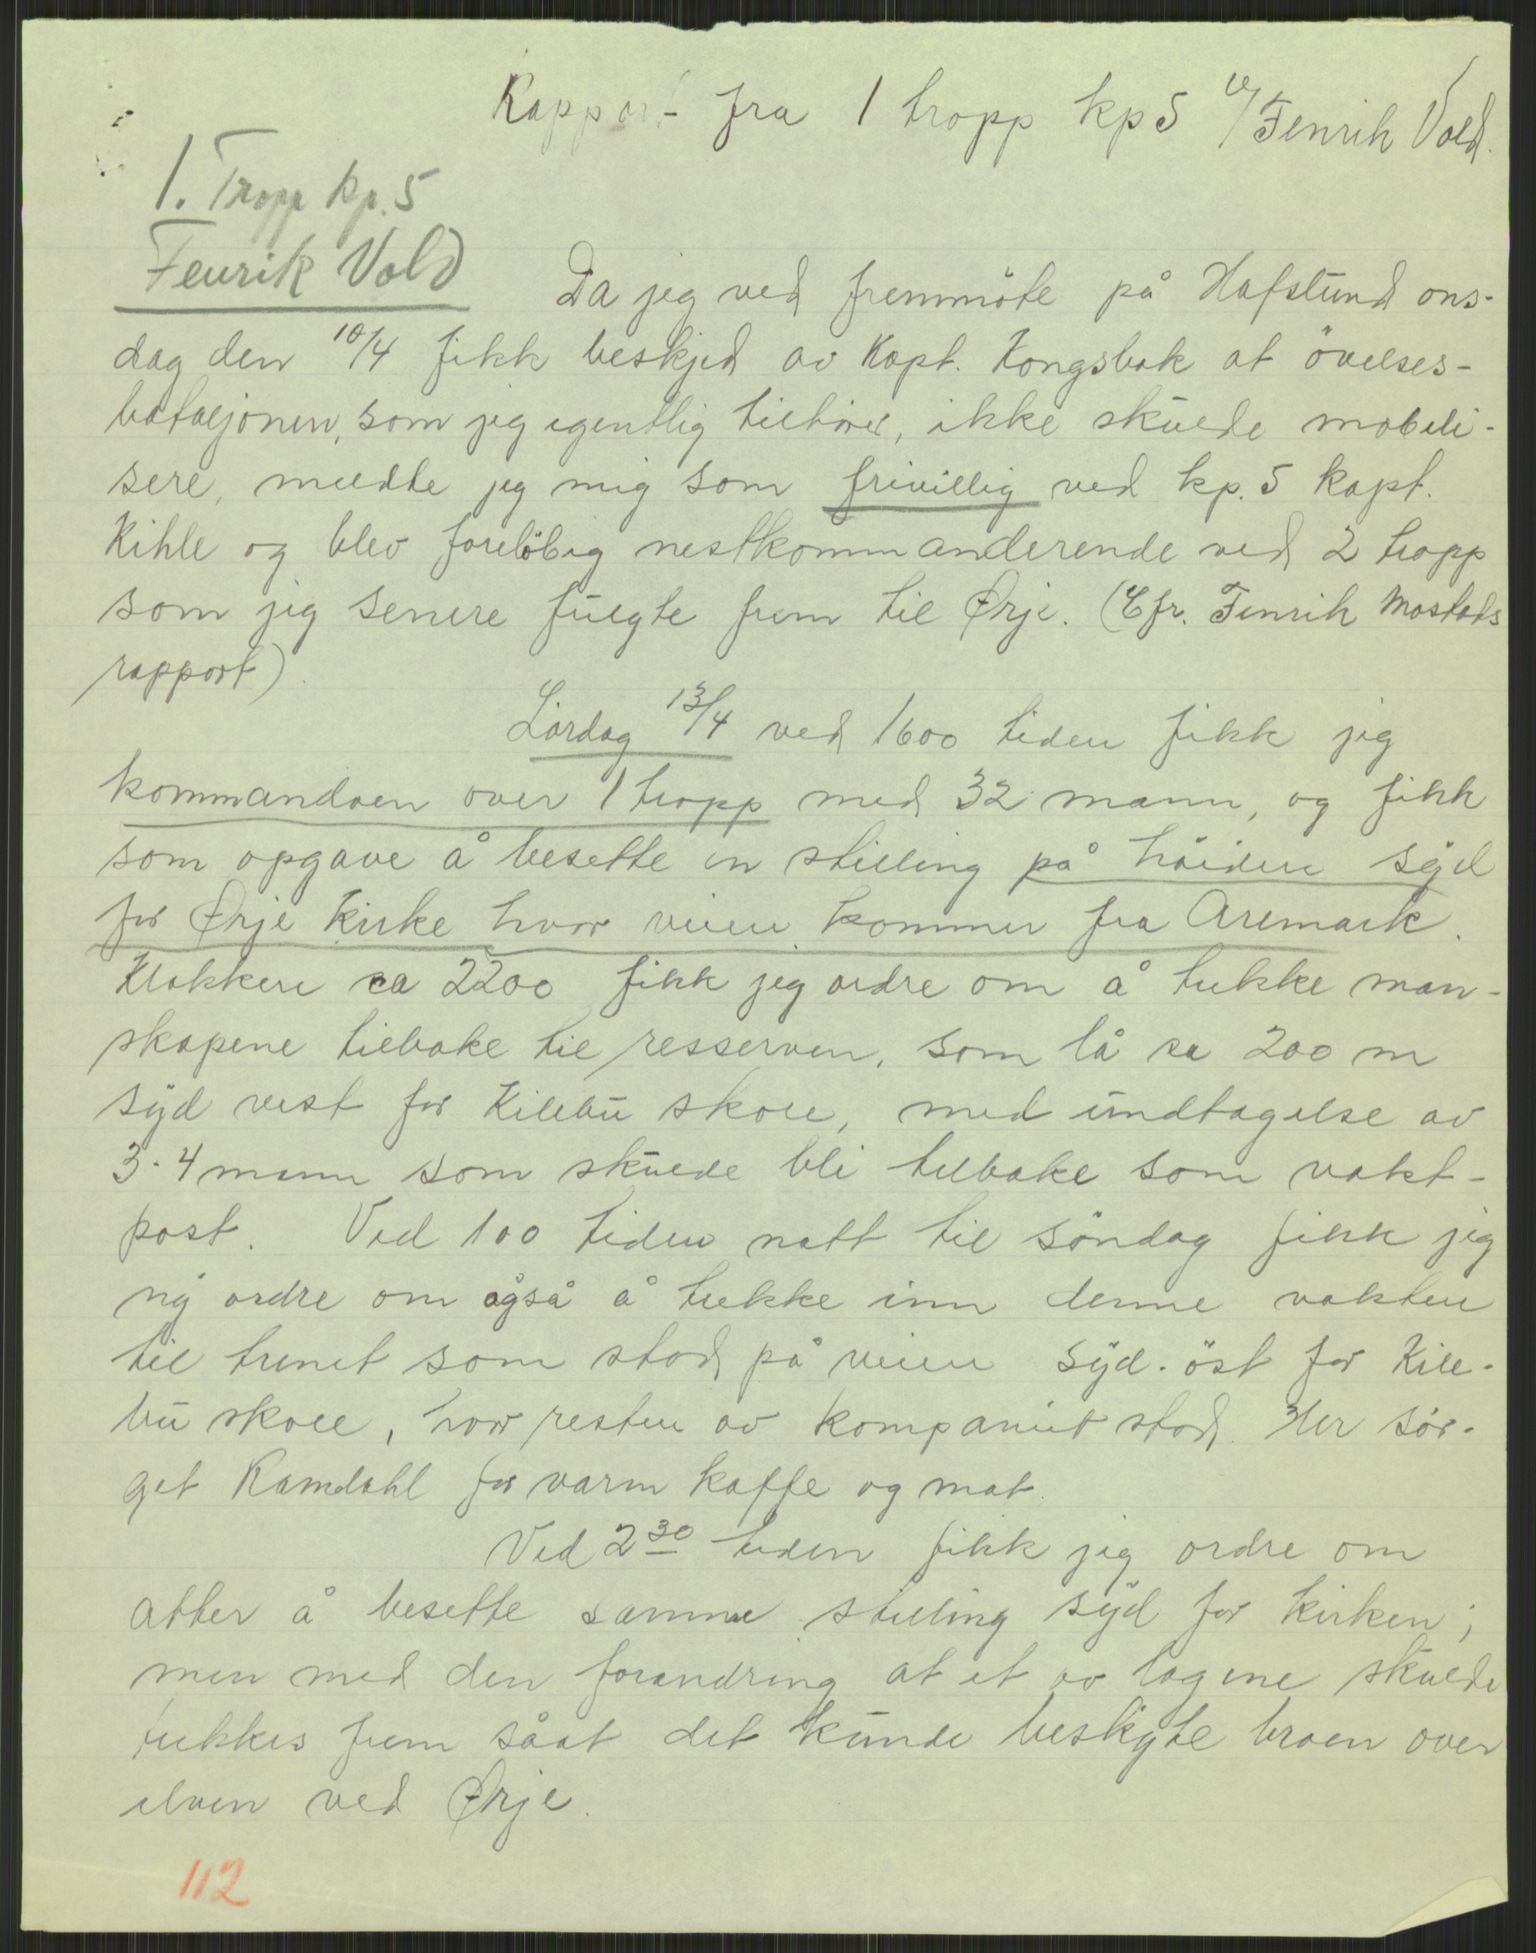 Rapport fra 1 tropp kp 5 v/ Fenrik Vold.
1. Tropp kp. 5
Fenrik Vold
Da jeg ved fremmöte på Hafslund ons-
dag den 10/4 fikk beskjed av Kapt. Kongsbak at övelses-
bataljonen, som jeg egentlig tilhörer, ikke skulde mobili-
sere, meldte jeg mig som frivillig ved kp. 5 Kapt.
Kihle og blev forelöbig nestkommanderende ved 2 tropp
som jeg senere fulgte frem til Ørje. (Cfr. Fenrik Mostads
rapport).
Lördag 13/4 ved 1600 tiden fikk jeg
kommandoen over 1 tropp med 32 mann, og fikk
som opgave å besette en stilling på höiden syd
for Ørje Kirke hvor veien kommer fra Aremark.
Klokken ca 2200 fikk jeg ordre om å trekke man-
skapene tilbake til resserven, som lå ca 200 m
syd vest for Kilebu skole, med undtagelse av
3-4 mann som skulde bli tilbake som vakt-
post. Ved 100 tiden natt til söndag fikk jeg
ny ordre om også å trekke inn denne vakten
til trenet som stod på veien syd-öst for Kile-
bu skole, hvor resten av kompaniet stod. Her sör-
get Ramdahl for varm kaffe og mat.
Ved 2 30 tiden fikk jeg ordre om
atter å besette samme stilling syd for kirken;
men med den forandring at et av lagene skulde
trekkes frem såat det kunde beskyte broen over
elven ved Ørje.
112